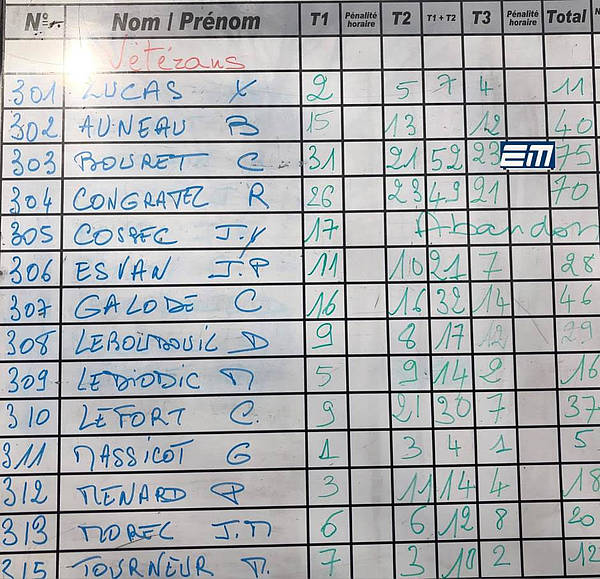 N° Nom / Prénom T1 Pénalité horaire T2 T1 + T2 T3 Pénalité horaire Total N
Vétérans
301 LUCAS X 2 5 7 4 11
302 AUNEAU B 15 13 12 40
303 BOURET C 31 21 52 23 EM 75
304 CONGRATEL R 26 23 49 21 70
305 COSSEC J.Y 17 Abandon
306 ESVAN J.P 11 10 21 7 28
307 GALODE C 16 16 32 14 46
308 D 9 8 17 12 29
309 LEDIODIC M 5 9 14 2 16
310 LEFORT C. 9 21 30 7 37
311 MASSICOT G 1 3 4 1 5
312 MENARD P 3 11 14 4 18
313 MOREC J.M 6 6 12 8 20
315 TOURNEUR M. 7 3 10 2 12